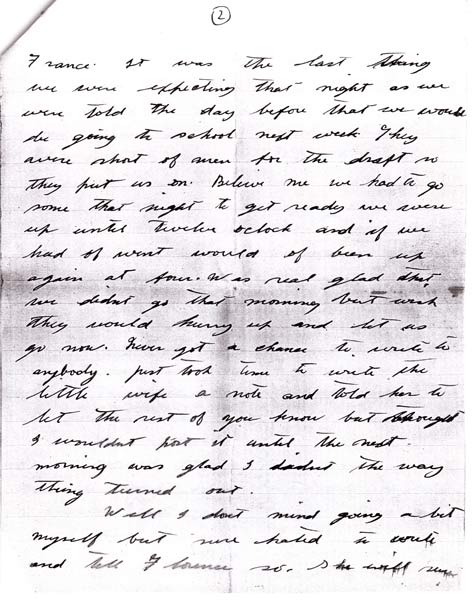 2
France. It was the last thing
we were expecting that night as we
were told the day before that we would
be going to school next week They
were short of men for the draft so
they put us on. Believe me we had to go
some that night to get ready we were
up until twelve oclock and if we
had of went would of been up
again at four. Was real glad that
we didnt go that morning but wish
they would hurry up and let us
go now. Never got a chance to write to
anybody. just took time to write the
little wife a note and told her to
let the rest of you know but thought
I wouldnt post it until the next
morning was glad I didnt the way
thing turned out.
Well I dont mind going a bit
myself but sure hated to write
and tell so. She will